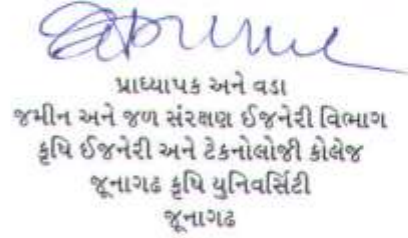 પ્રાધ્યાપક અને વડા
જમીન અને જળ સંરક્ષણ ઈજનેરી વિભાગ
કૃષિ ઈજનેરી અને ટેકનોલોજી કોલેજ
જૂનાગઢ કૃષિ યુનિવર્સિટી
જૂનાગઢ